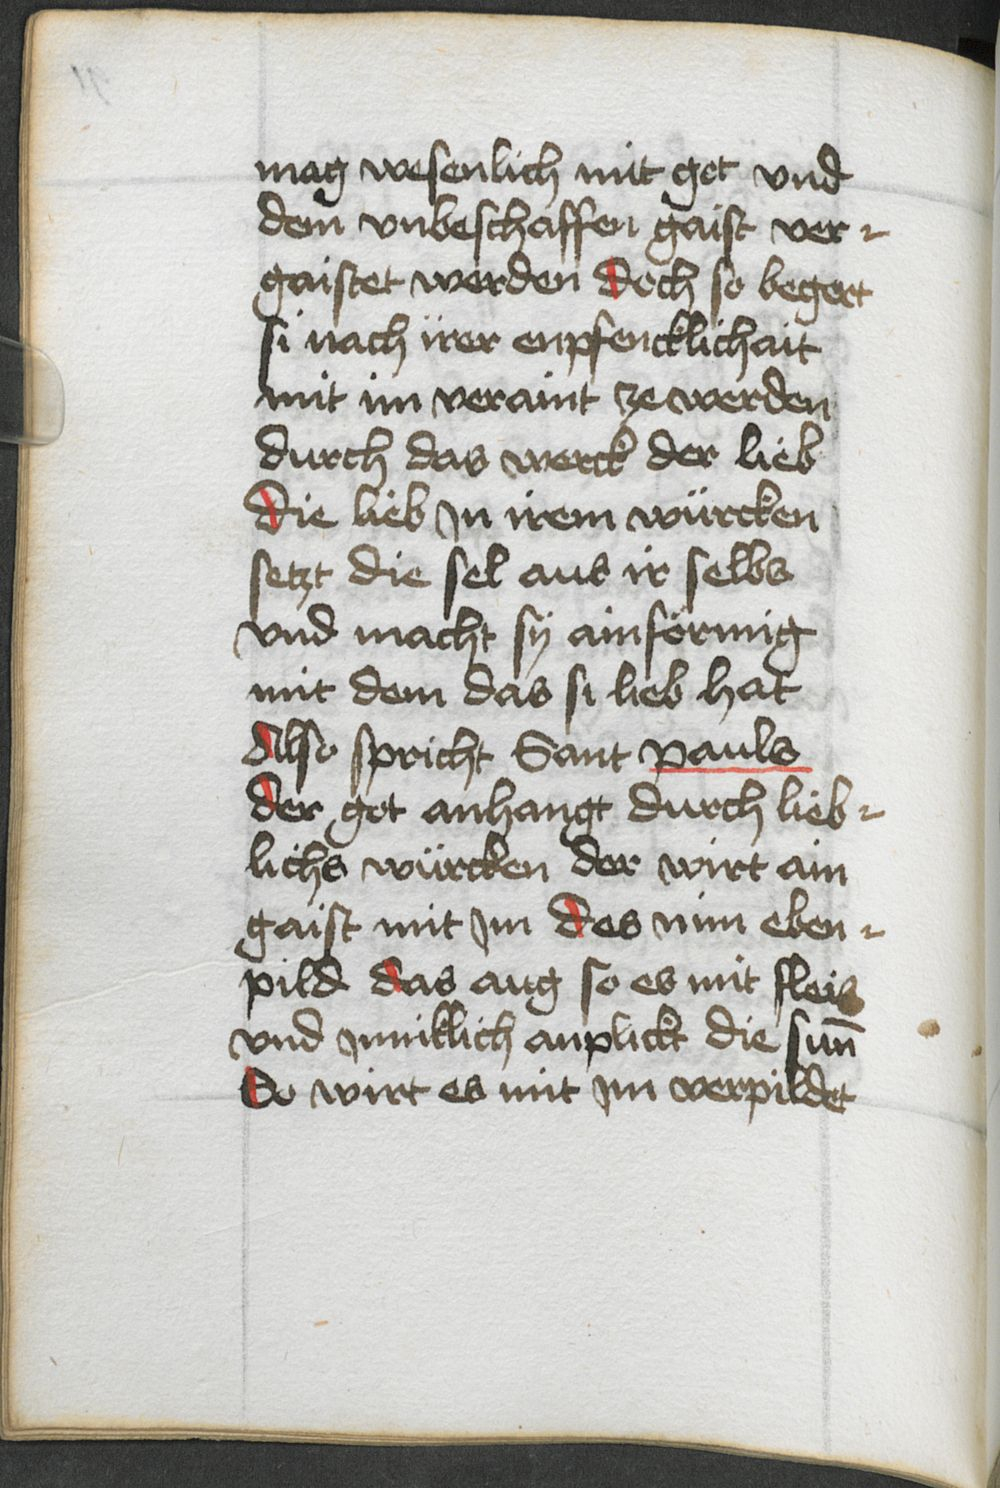 mag wesenlich mit got vnd
dem vnbeschaffen gaist ver-
gaistet werden Doch so begert
si nach irer enpfencklichait
mit im veraint ze werden
durch das werck der lieb
Die lieb Jn irem würcken
setzt die sel aus ir selbs
vnd macht sÿ ainförmig
mit dem das si lieb hat
Also spricht Sant pauls
Der got anhangt durch lieb-
lichs würcken der wirt ain
gaist mit Jm Des nim eben-
pild Das aug so es mit fleis
vnd Jnniklich anplickt die sun̄
So wirt es mit Jm verpildet